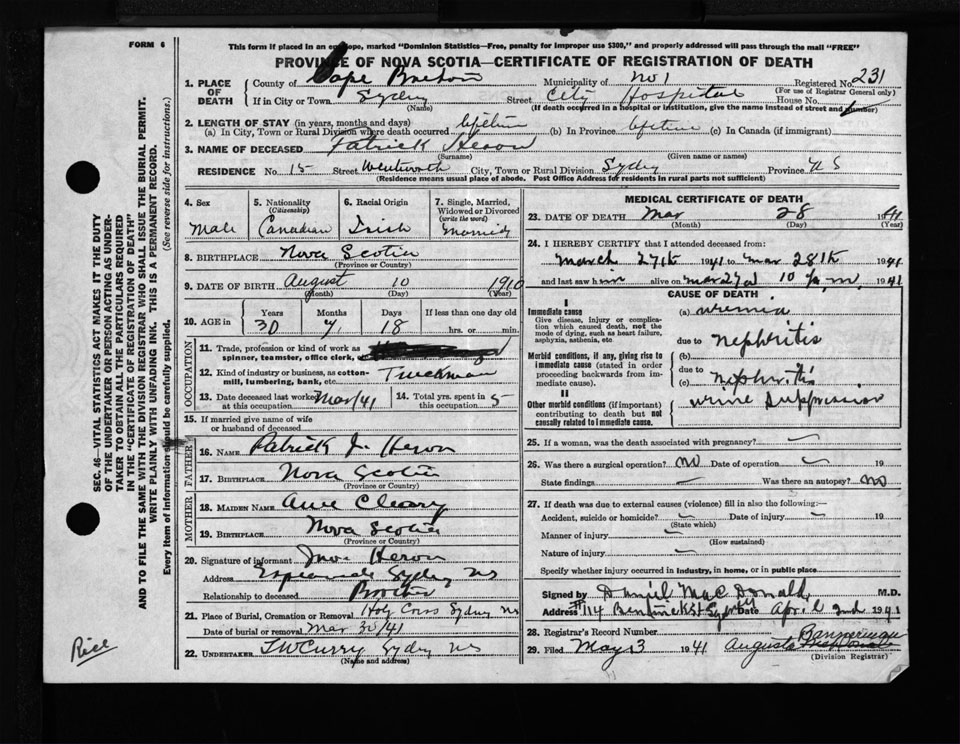 FORM 6
This form if placed in an envelope, marked "Dominion Statistics—Free, penalty for improper use $300," and properly addressed will pass through the mail "FREE"
PROVINCE OF NOVA SCOTIA—CERTIFICATE OF REGISTRATION OF DEATH
1. PLACE OF DEATH County of Cape Breton Municipality of No 1 Registered No. 231
(For use of Registrar General only)
If in City or Town Sydney Street City Hospital House No.
(Name) (If death occurred in a hospital or institution, give the name instead of street and number)
2. LENGTH OF STAY (in years, months and days)
(a) In City, Town or Rural Division where death occurred lifetime (b) In Province lifetime (c) In Canada (if immigrant)
3. NAME OF DECEASED Patrick Heron
(Surname) (Given name or names)
RESIDENCE No. 15 Street Wentworth City, Town or Rural Division Sydney Province N S
(Residence means usual place of abode. Post Office Address for residents in rural parts not sufficient)
4. Sex Male
5. Nationality (Citizenship) Canadian
6. Racial Origin Irish
7. Single, Married, Widowed or Divorced (write the word) Married
8. BIRTHPLACE Nova Scotia
(Province or Country)
9. DATE OF BIRTH August 10 1910
(Month) (Day) (Year)
10. AGE in Years 30 Months 7 Days 18 If less than one day old hrs. or min.
OCCUPATION
11. Trade, profession or kind of work as spinner, teamster, office clerk,
12. Kind of industry or business, as cotton-mill, lumbering, bank, etc. Truckman
13. Date deceased last worked at this occupation Mar/41
14. Total yrs. spent in this occupation 5
15. If married give name of wife or husband of deceased
FATHER
16. NAME Patrick J. Heron
17. BIRTHPLACE Nova Scotia
(Province or Country)
MOTHER
18. MAIDEN NAME Anne Cleary
19. BIRTHPLACE Nova Scotia
(Province or Country)
20. Signature of informant Heron
Address Esplanade Sydney NS
Relationship to deceased Brother
21. Place of Burial, Cremation or Removal Holy Cross Sydney NS
Date of burial or removal Mar 30/41
22. UNDERTAKER T W Curry Sydney NS
(Name and address)
MEDICAL CERTIFICATE OF DEATH
23. DATE OF DEATH Mar 28 1941
(Month) (Day) (Year)
24. I HEREBY CERTIFY that I attended deceased from:
March 27th 1941 to Mar 28th 1941
and last saw him alive on Mar 27th 10 p.m. 1941
CAUSE OF DEATH
I
Immediate cause
Give disease, injury or complication which caused death, not the mode of dying, such as heart failure, asphyxia, asthenia, etc.
(a) uremia
due to
Morbid conditions, if any, giving rise to immediate cause (stated in order proceeding backwards from immediate cause).
(b) nephritis
due to
(c) nephritis
II
Other morbid conditions (if important) contributing to death but not causally related to immediate cause.
urine suppression
25. If a woman, was the death associated with pregnancy?
26. Was there a surgical operation? no Date of operation 19
State findings Was there an autopsy? no
27. If death was due to external causes (violence) fill in also the following:—
Accident, suicide or homicide? Date of injury 19
(State which)
Manner of injury
(How sustained)
Nature of injury
Specify whether injury occurred in industry, in home, or in public place
Signed by Daniel MacDonald M.D.
Address #114 Bentinck St Sydney Date April 2nd 1941
28. Registrar's Record Number
29. Filed May 3 1941 Augusta Bannerman
(Division Registrar)
SEC. 46—VITAL STATISTICS ACT MAKES IT THE DUTY
OF THE UNDERTAKER OR PERSON ACTING AS UNDER-
TAKER TO OBTAIN ALL THE PARTICULARS REQUIRED
IN THE "CERTIFICATE OF REGISTRATION OF DEATH"
AND TO FILE THE SAME WITH THE DIVISION REGISTRAR WHO SHALL ISSUE THE BURIAL PERMIT.
WRITE PLAINLY WITH UNFADING INK. THIS IS A PERMANENT RECORD.
Every item of information should be carefully supplied. (See reverse side for instructions.)
Rice